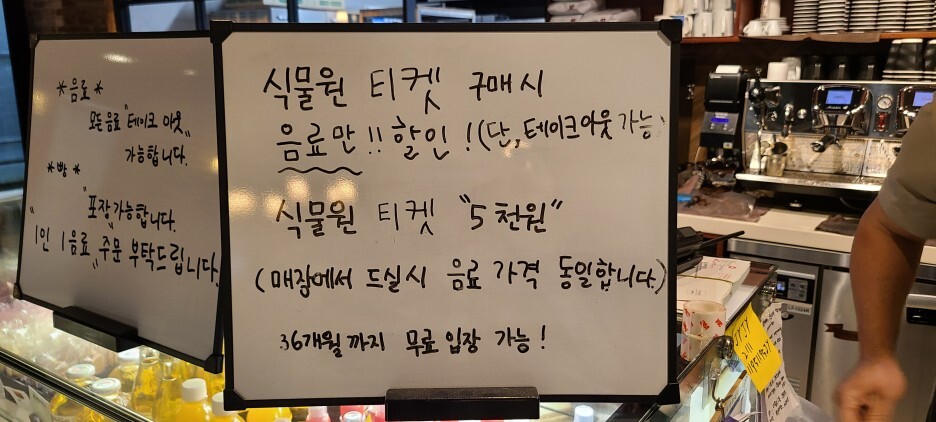 *음료*
모든 음료 "테이크 아웃"
가능합니다.
*빵*
"포장" 가능합니다.
"1인 1음료" 주문 부탁드립니다.
식물원 티켓 구매시
음료만!! 할인! (단, 테이크아웃 가능)
식물원 티켓 "5천원"
(매장에서 드실시 음료 가격 동일합니다.)
36개월까지 무료 입장 가능!